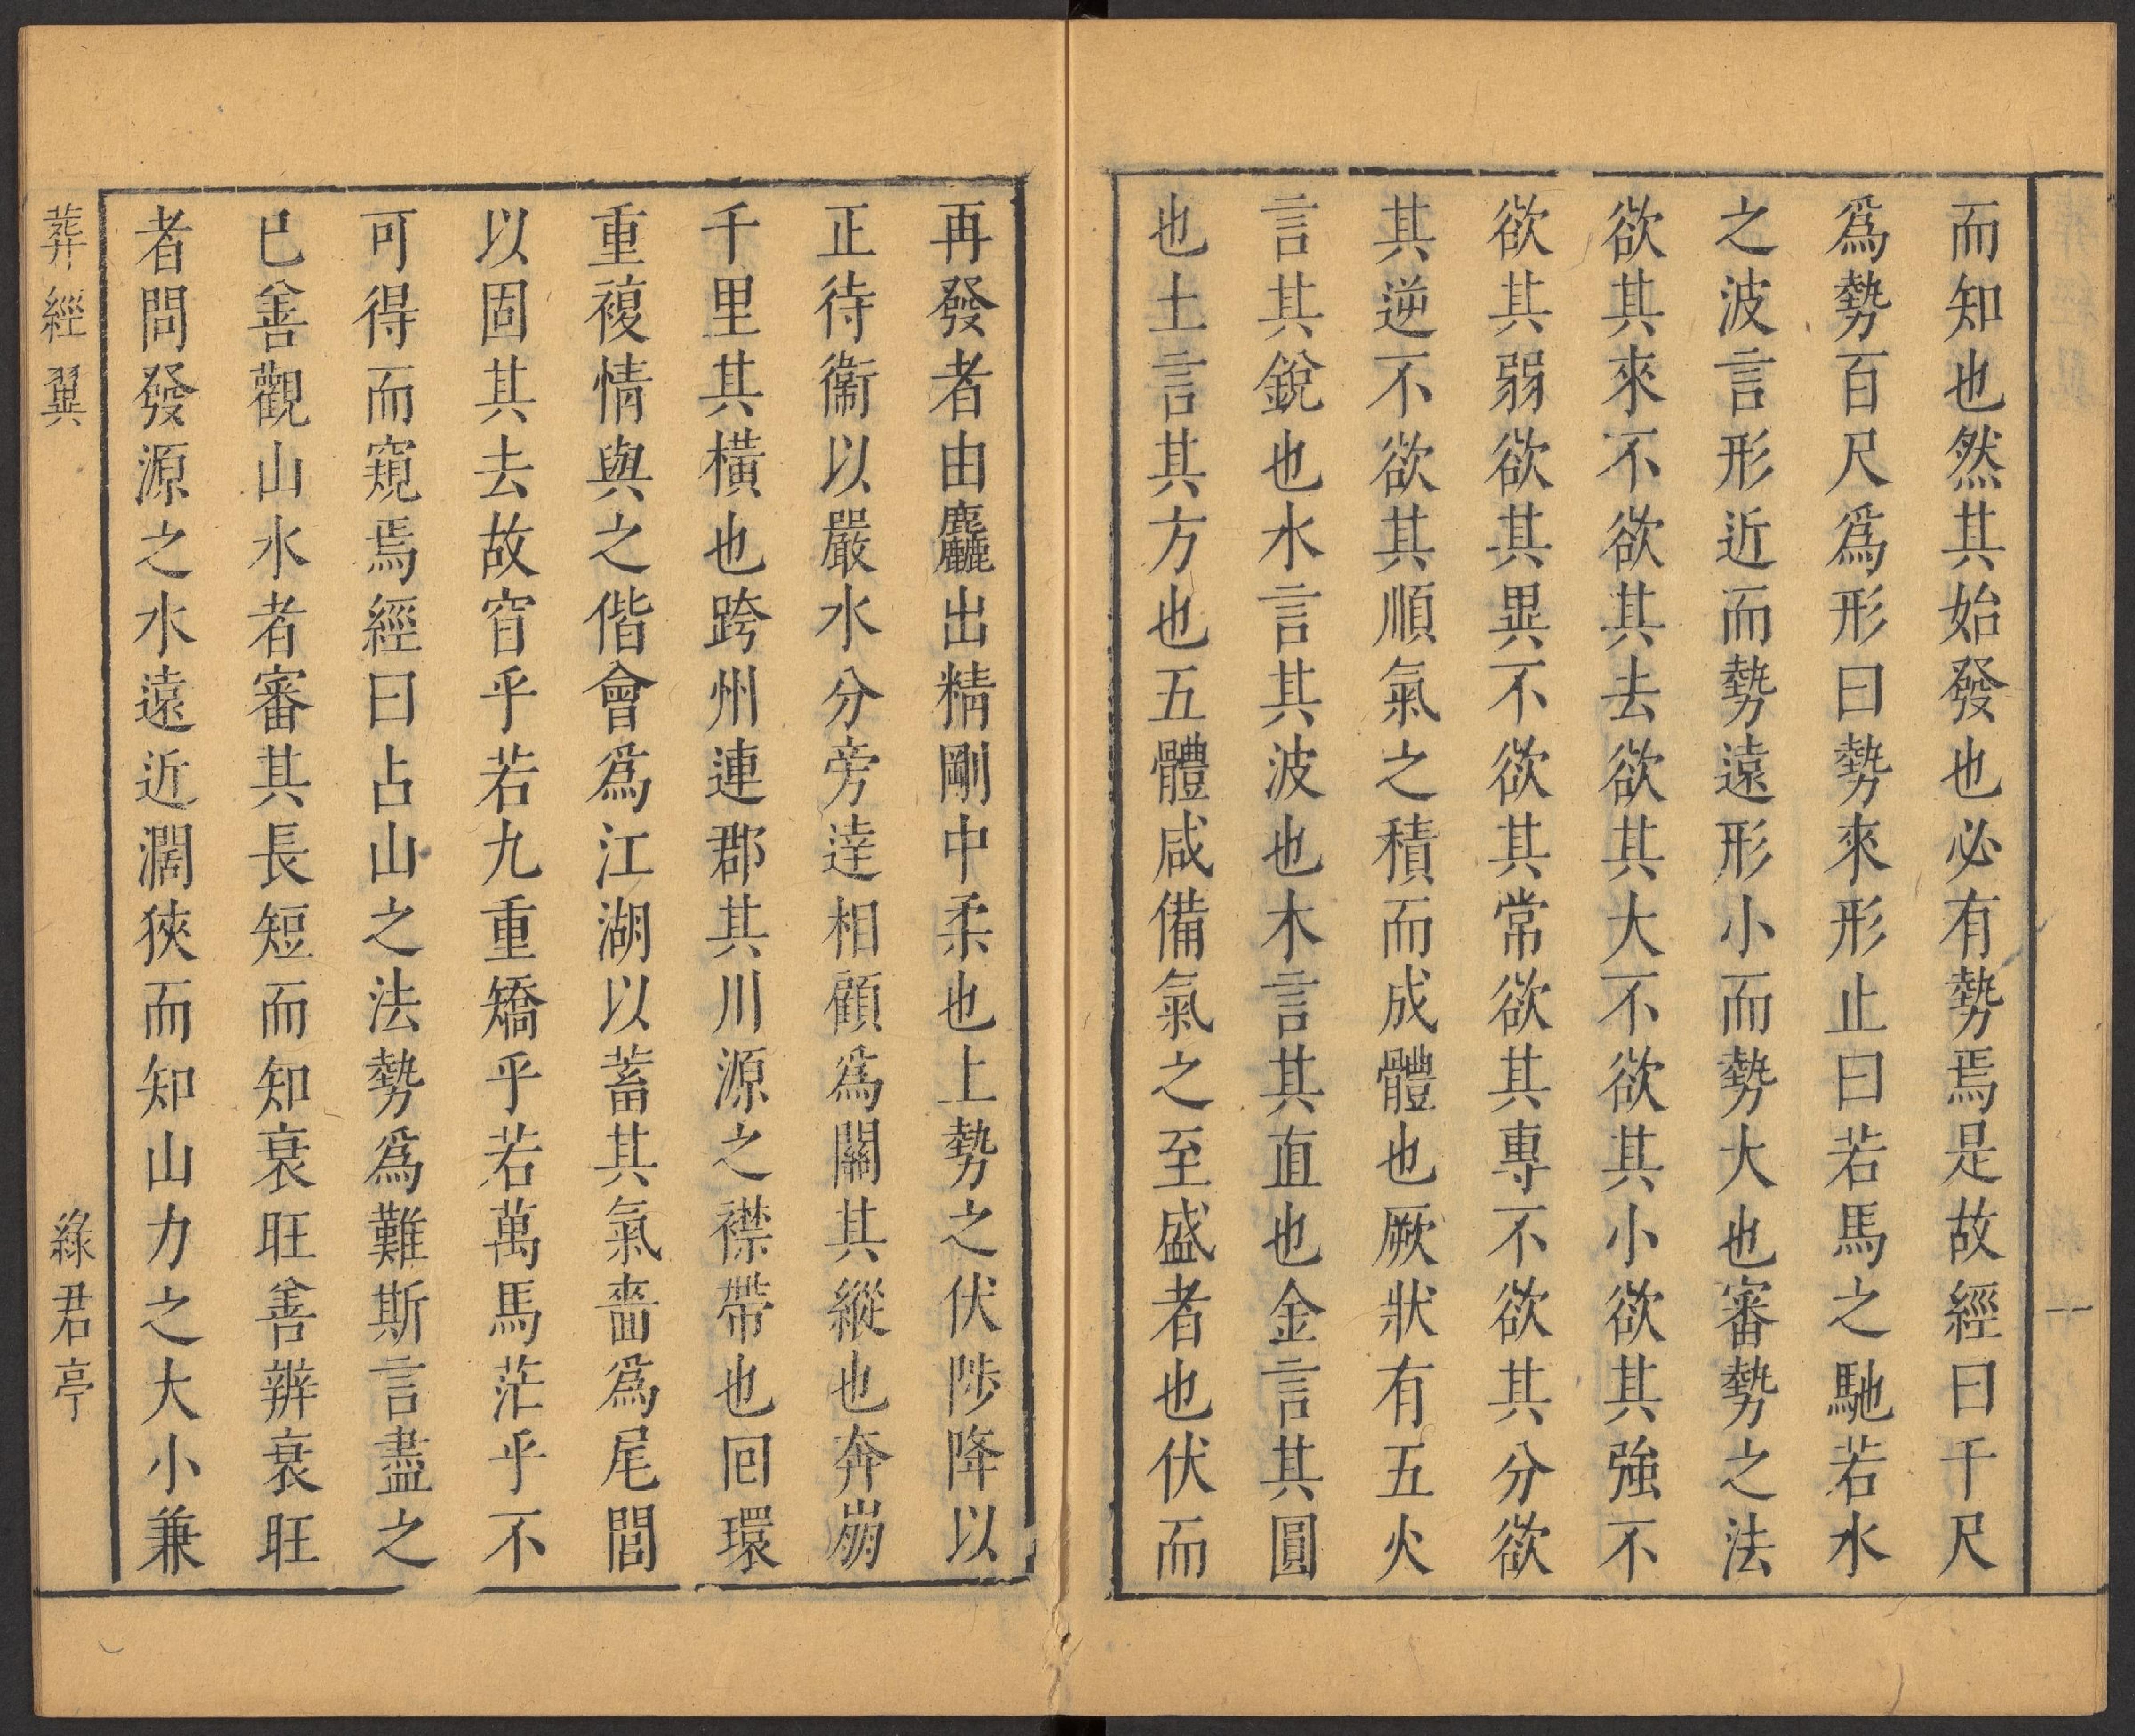 而知也然其始發也必有勢焉是故經曰千尺
爲勢百尺爲形曰勢來形止曰若馬之馳若水
之波言形近而勢遠形小而勢大也審勢之法
欲其來不欲其去欲其大不欲其小欲其強不
欲其弱欲其異不欲其常欲其專不欲其分欲
其逆不欲其順氣之積而成體也厥狀有五火
言其銳也水言其波也木言其直也金言其圓
也土言其方也五體咸備氣之至盛者也伏而
再發者由麤出精剛中柔也上勢之伏陟降以
正待衞以嚴水分旁達相顧爲關其縱也奔崩
千里其橫也跨州連郡其川源之襟帶也回環
重複情與之偕會爲江湖以蓄其氣嗇爲尾閭
以固其去故窅乎若九重矯乎若萬馬茫乎不
可得而窺焉經曰占山之法勢爲難斯言盡之
已善觀山水者審其長短而知衰旺善辨衰旺
者問發源之水遠近濶狹而知山力之大小兼
葬經翼 綠君亭